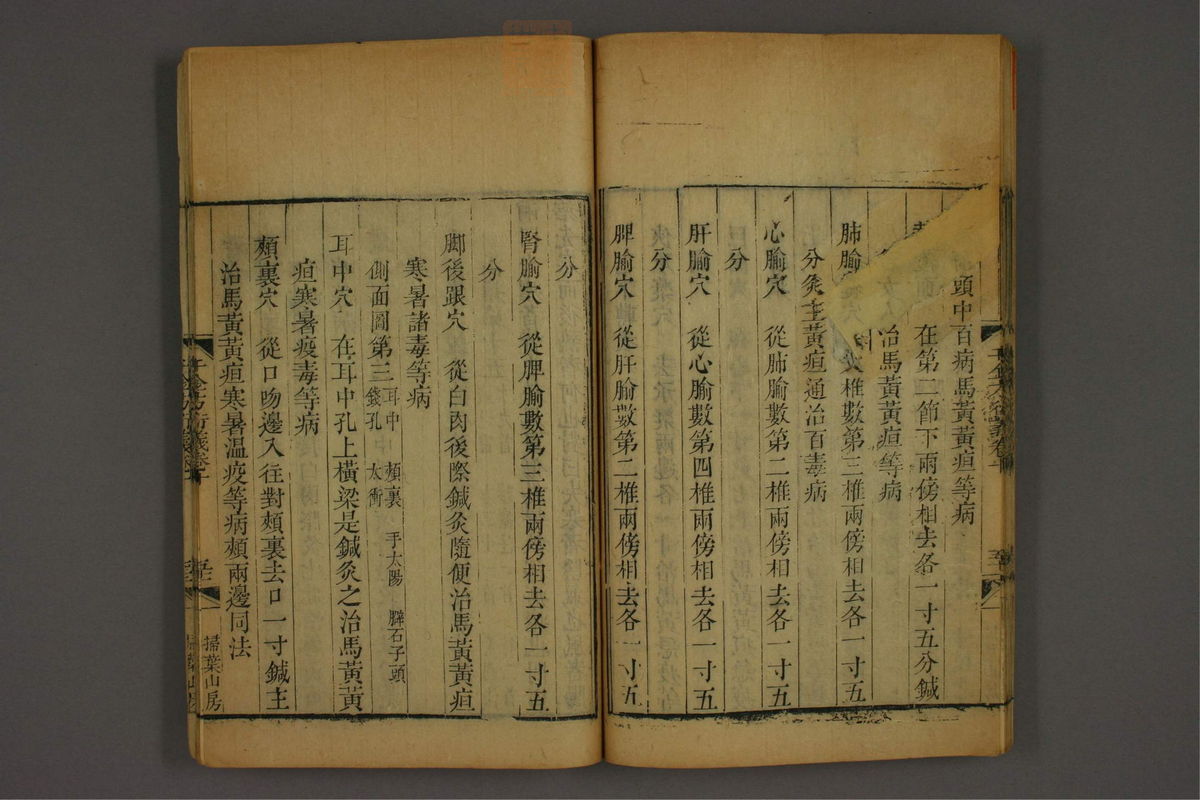 頭中百病馬黃黃疸等病
在第二節下兩傍相去各一寸五分鍼
治馬黃黃疸等病
肺腧
椎數第三椎兩傍相去各一寸五
分灸主黃疸通治百毒病
心腧穴　從肺腧數第二椎兩傍相去各一寸五
分
肝腧穴　從心腧數第四椎兩傍相去各一寸五
分
脾腧穴　從肝腧數第二椎兩傍相去各一寸五
分
腎腧穴　從脾腧數第三椎兩傍相去各一寸五
分
脚後跟穴　從白肉後際鍼灸隨便治馬黃黃疸
寒暑諸毒等病
側面圖第三　耳中　頰裏　手太陽　臂石子頭
錢孔　太衝
耳中穴　在耳中孔上橫梁是鍼灸之治馬黃黃
疸寒暑疫毒等病
頰裏穴　從口吻邊入往對頰裏去口一寸鍼主
治馬黃黃疸寒暑溫疫等病頰兩邊同法
掃葉山房